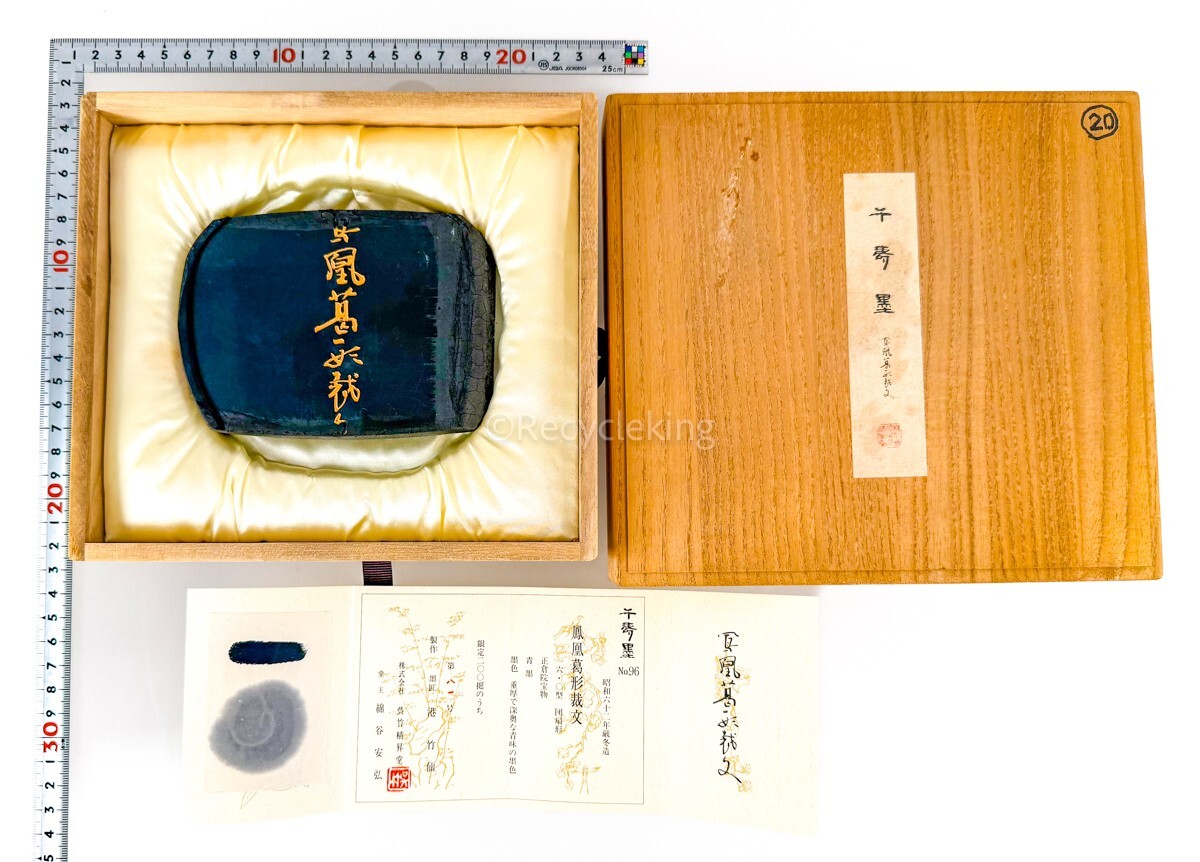 1 2 3 4 5 6 7 8 9 10 1 2 3 4 5 6 7 8 9 20 1 2 3 4
25cm
1 2 3 4 5 6 7 8 9 10 1 2 3 4 5 6 7 8 9 20 1 2 3 4 5 6 7 8 9 30 1 2 3 4 5
凰葛形裁
20
千寿墨
鳳凰葛形裁文
©Recycleking
鳳凰葛形裁文
千寿墨 No.96
昭和六十二年厳冬造
鳳凰葛形裁文
六・〇型 団扇形
正倉院宝物
青墨
墨色 重厚で深奥な青味の墨色
限定二〇〇挺のうち
第八一号
製作 墨匠 港竹仙
株式会社 呉竹精昇堂
堂主 綿谷安弘